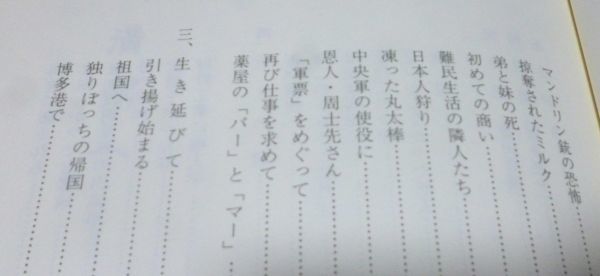 マンドリン銃の恐怖
掠奪されたミルク
弟と妹の死
初めての商い
難民生活の隣人たち
日本人狩り
凍った丸太棒
中央軍の使役に
恩人・周士先さん
「軍票」をめぐって
再び仕事を求めて
薬屋の「パー」と「マー」
三、生き延びて
引き揚げ始まる
祖国へ
独りぼっちの帰国
博多港で